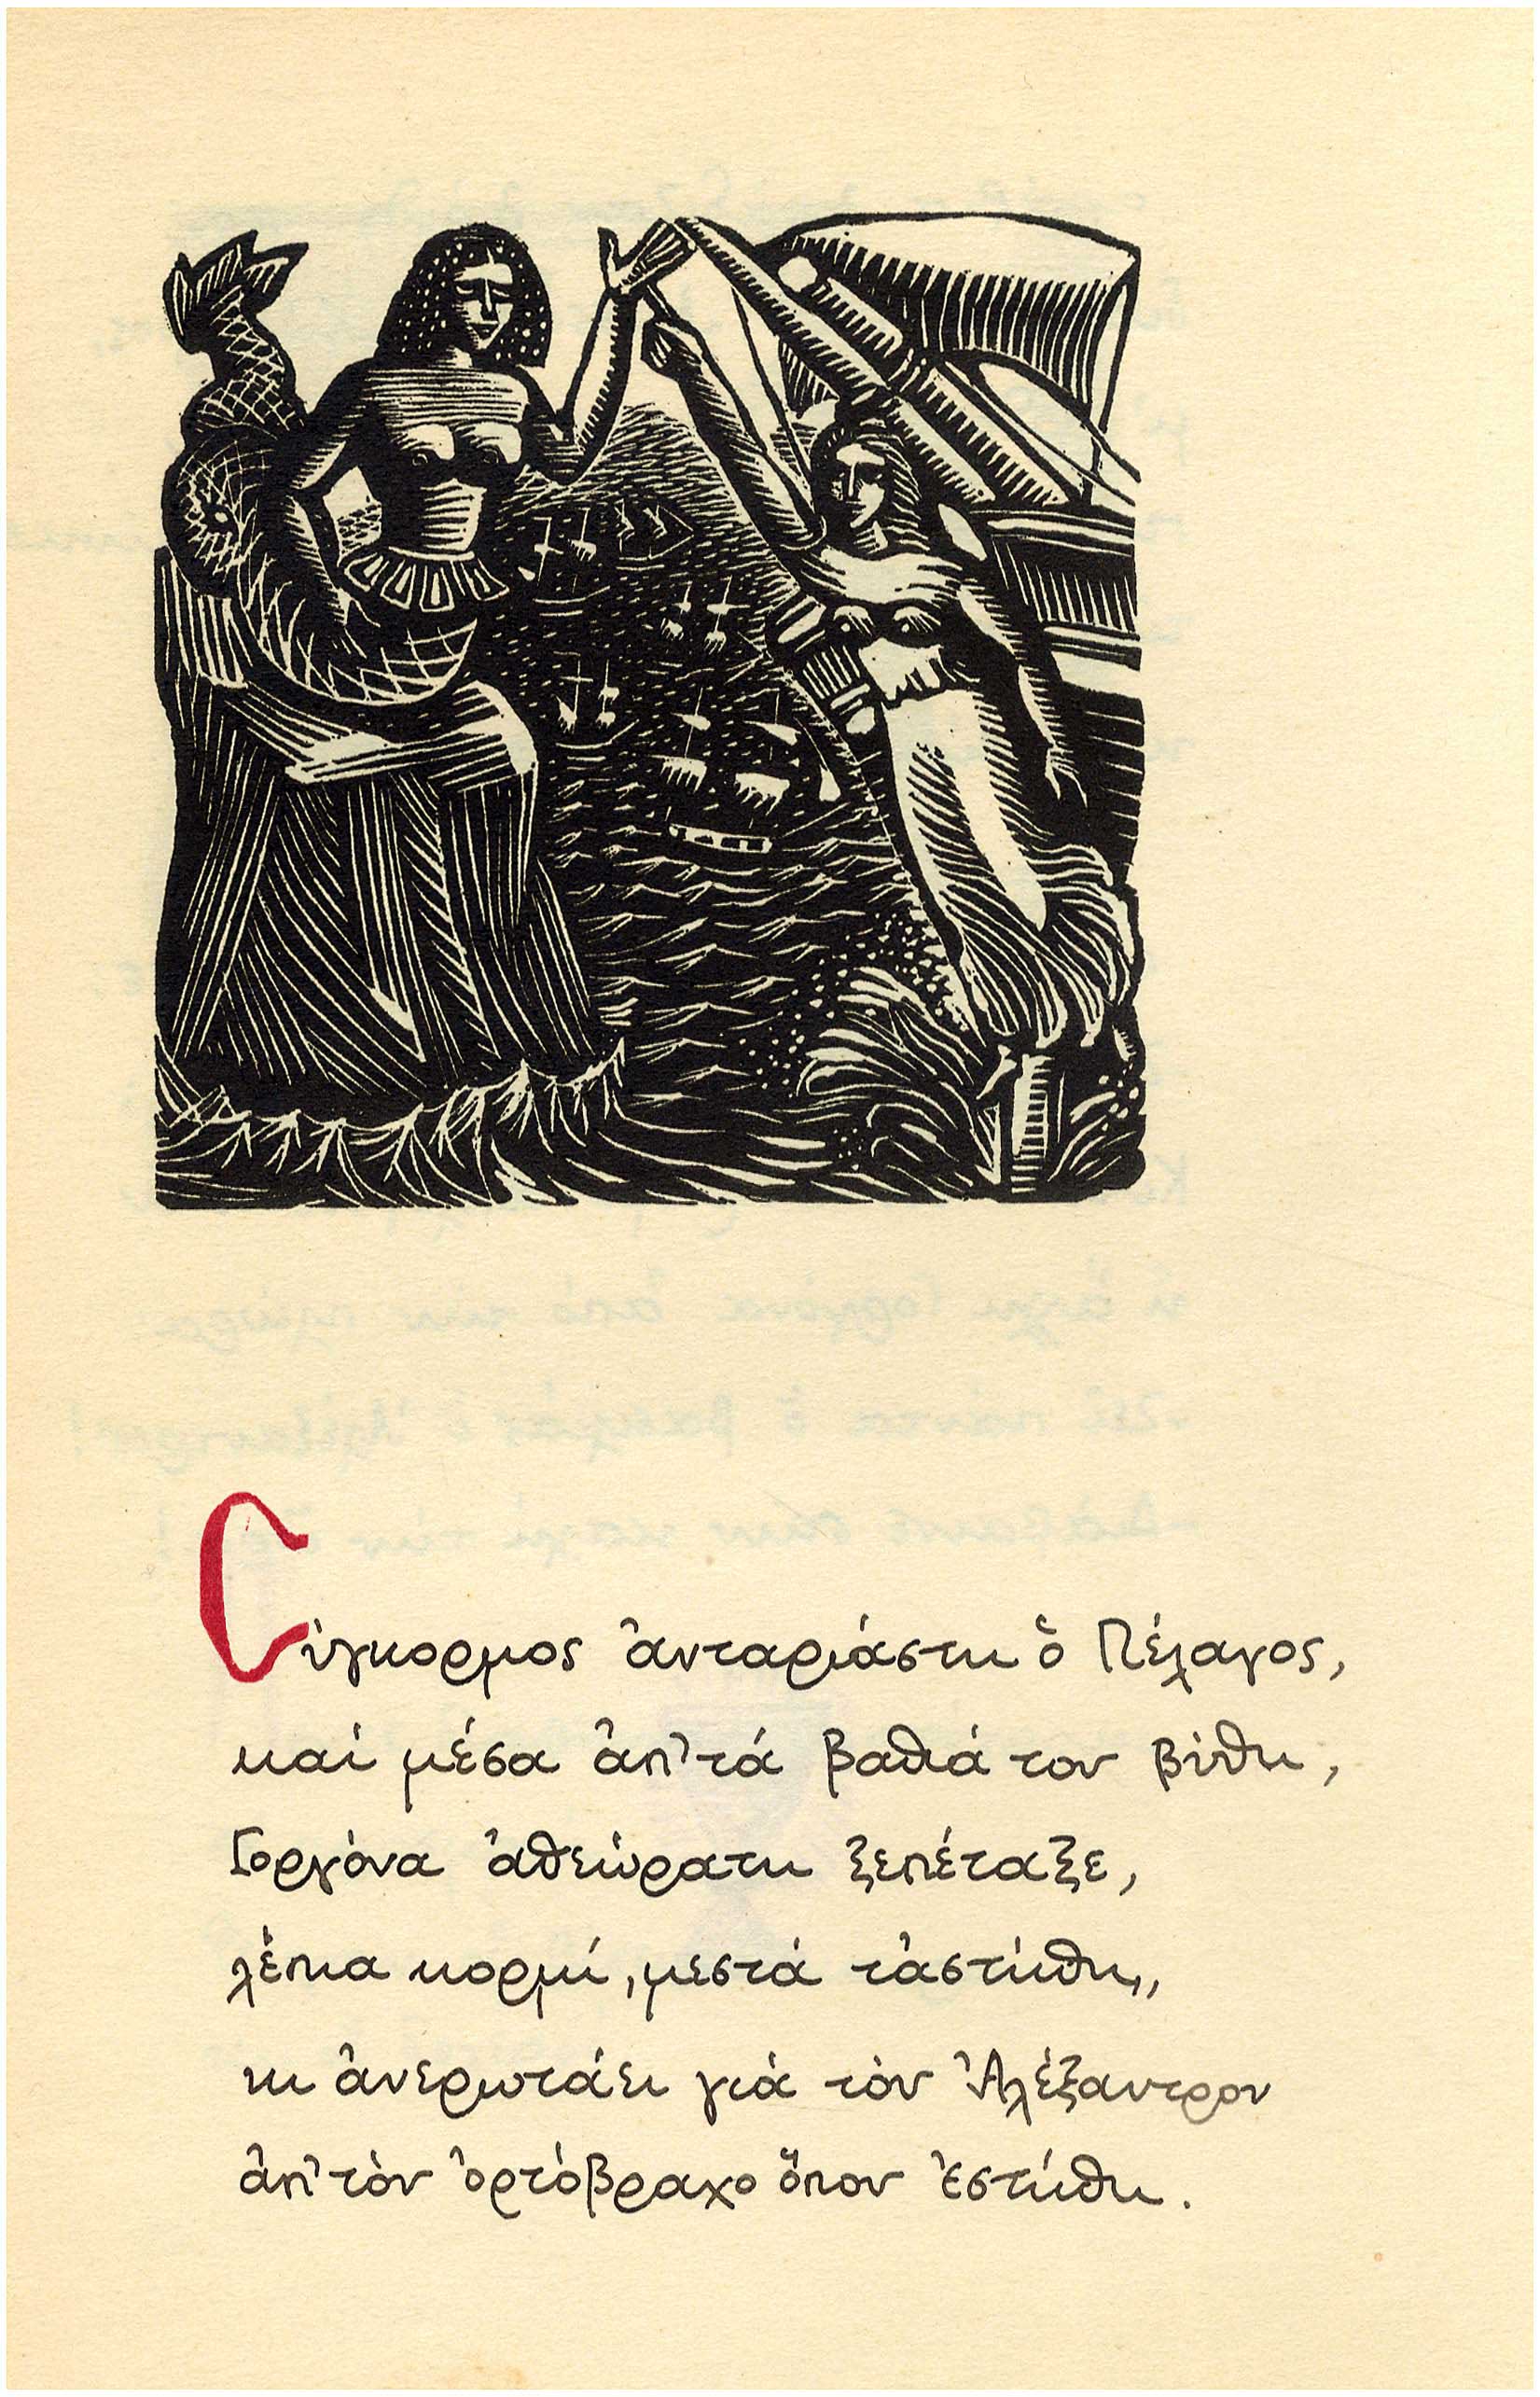 Σύγκορμος ἀνταριάστη ὁ Πέλαγος,
καί μέσα ἀπ' τά βαθιά του βύθη,
Γοργόνα ἀθεώρατη ξεπέταξε,
λέπια κορμί, μεστά τἀ στήθη,
κι ἀνερωτάει γιά τὸν Ἀλέξαντρον
ἀπ' τὸν ὀρτόβραχο ὅπου ἐστήθη.